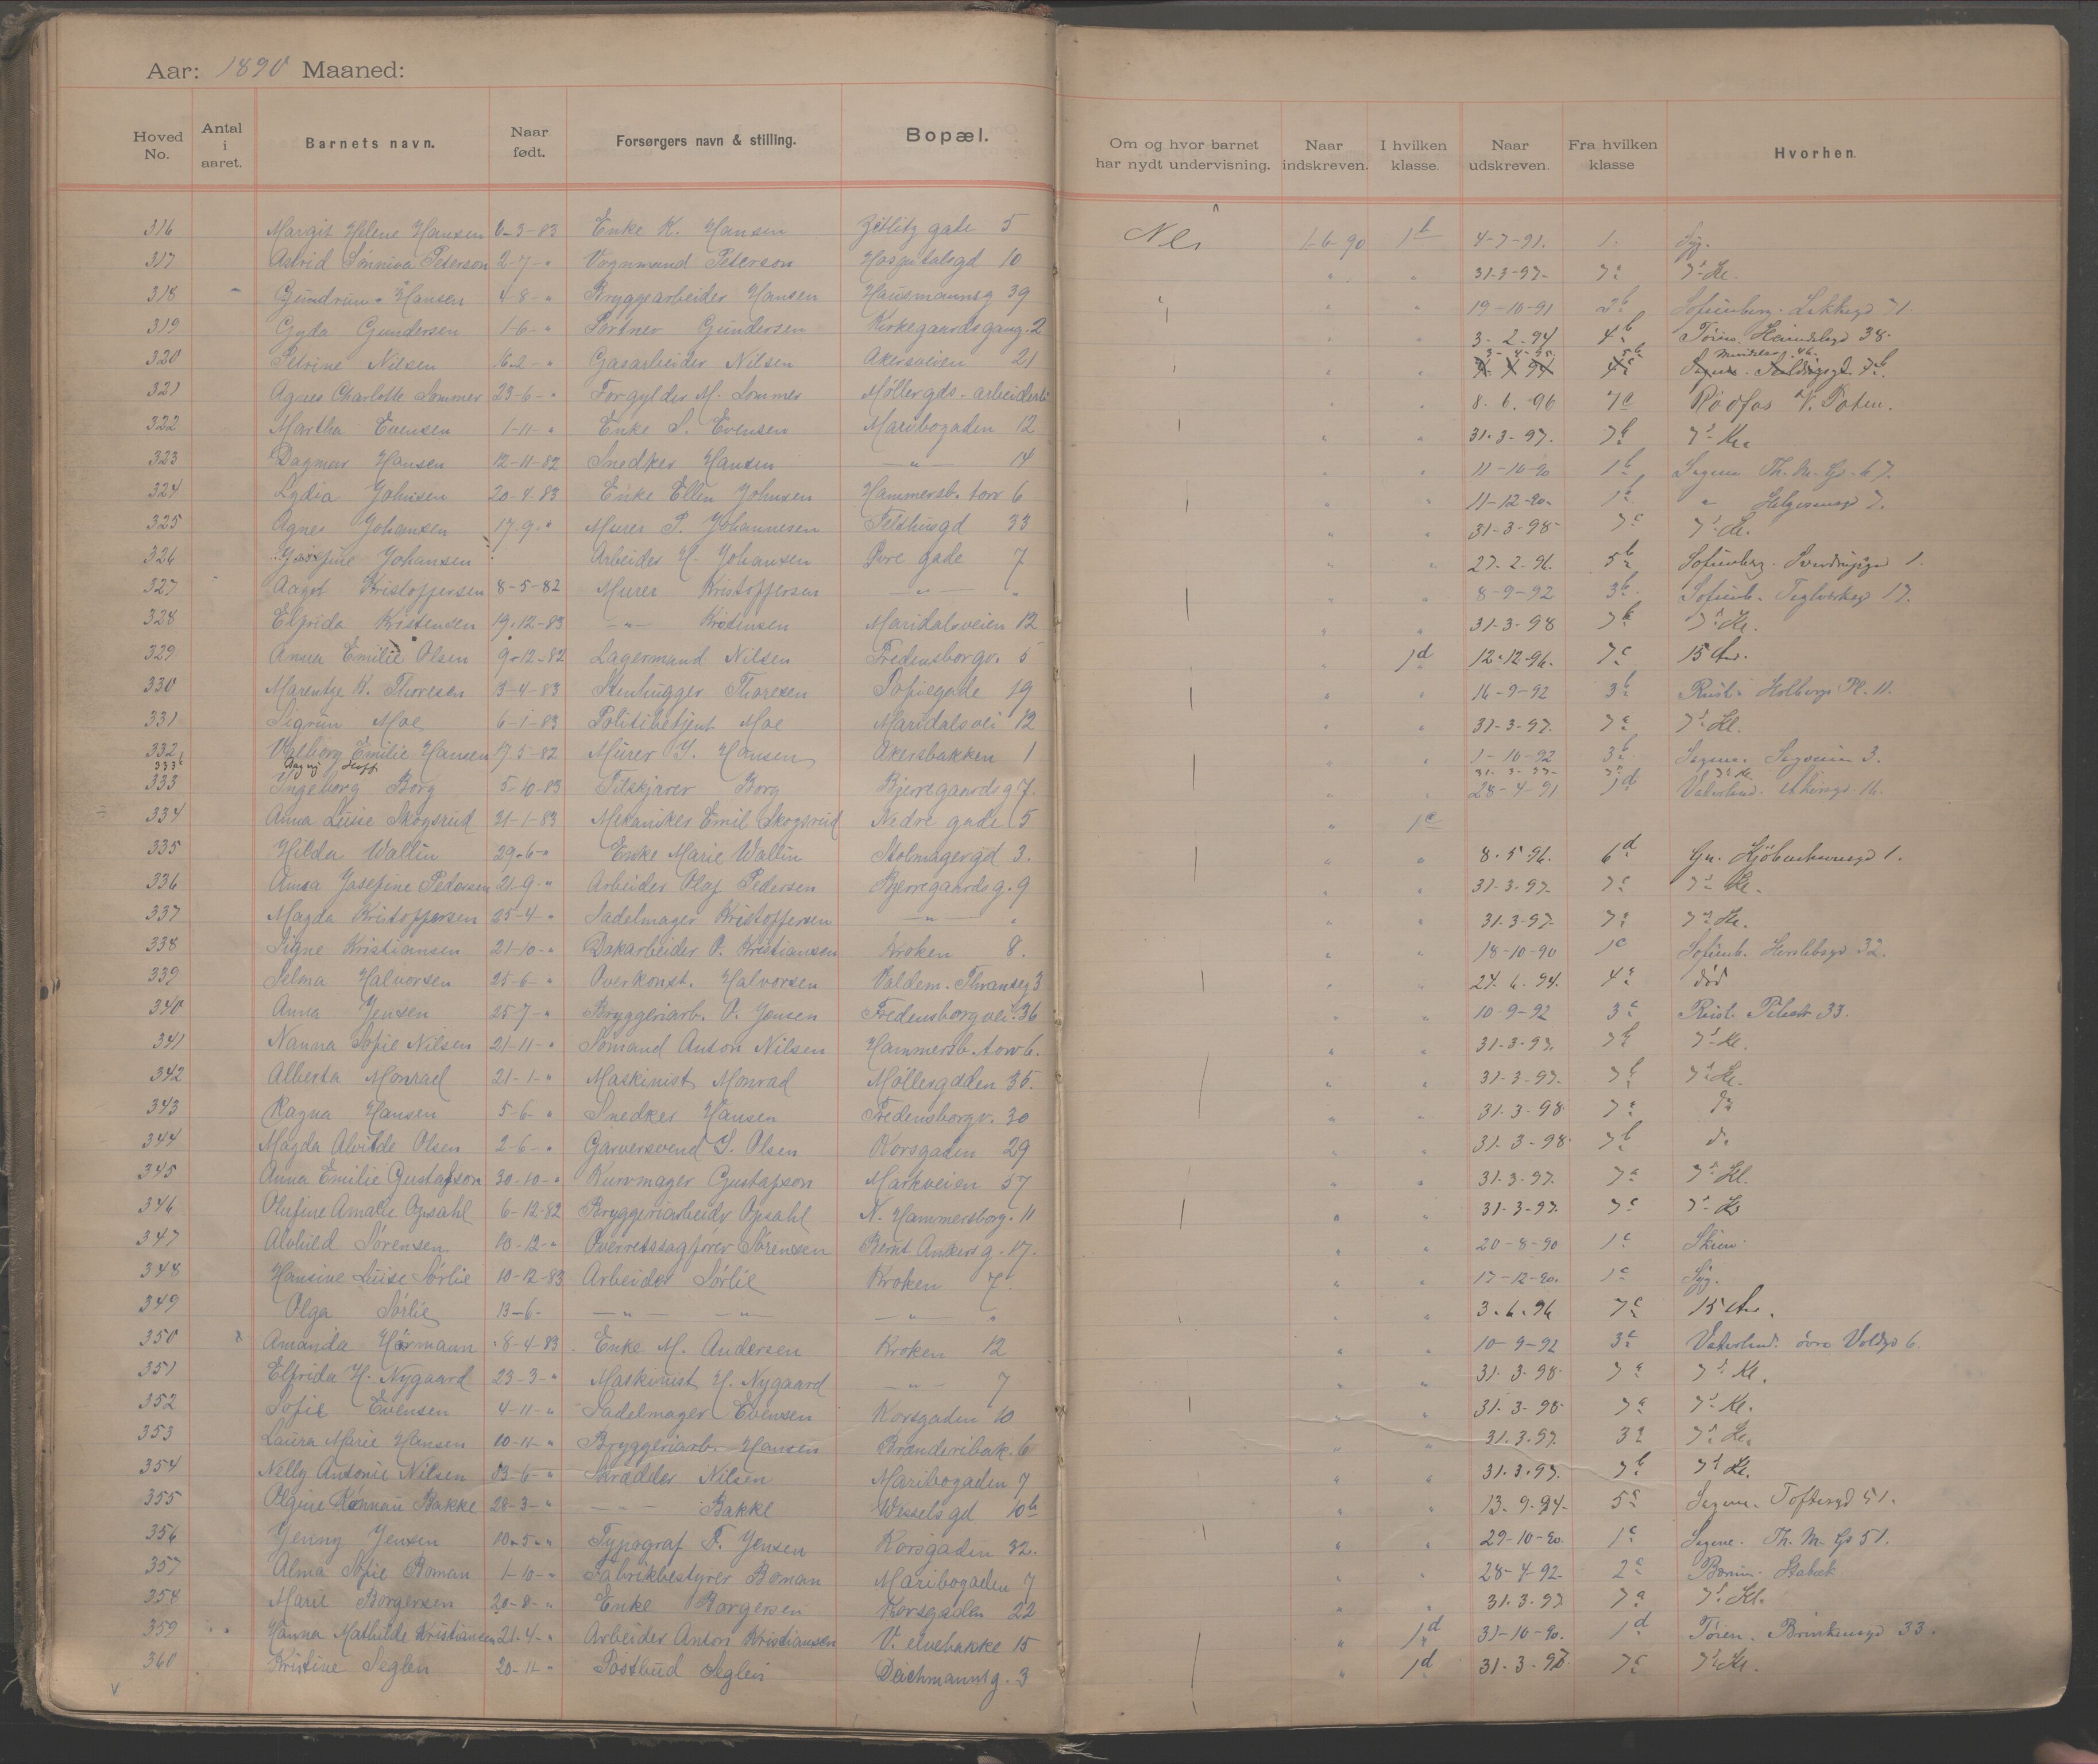 Aar: 1890 Maaned:
Hoved No. Antal i aaret. Barnets navn. Naar født. Forsørgers navn & stilling. Bopæl. Om og hvor barnet har nydt undervisning. Naar indskreven. I hvilken klasse. Naar udskreven. Fra hvilken klasse Hvorhen.
316 Margit Helene Hansen 6-3-83 Enke K. Hansen Zetlitz gade 5 Nei 1-6-90 1b 4-7-91. 1. Syg.
317 Astrid Sønniva Peterson 2-7-" Vognmand Peterson Hospitalsgd 10 " " 31-3-97. 7a 7de Kl.
318 Gundrun Hansen 4-8-" Bryggearbeider Hansen Hausmannsg 39 " " 19-10-91 2b Sofienberg.
319 Gyda Gundersen 1-6-" Portner Gundersen Kirkegaardsgang. 2 " " 3-2-94 4b Tøien. 38.
320 Petrine Nilsen 16-2-" Gasarbeider Nilsen Akersveien 21 " "
321 Agnes Charlotte Sommer 23-6-" Forgylder M. Sommer Møllergds. " " 8.6.96 7c
322 Martha Evensen 1-11-" Enke S. Evensen Maribogaden 12 " " 31.3-97. 7b 7de Kl.
323 Dagmar Hansen 12-11-82 Snedker Hansen —"— 14 " " 11-10-90 1b Sagene. Th. M. Gd. 67.
324 Lydia Johnsen 20-4-83 Enke Ellen Johnsen Hammersb. torv 6 " " 11-12-90. 1b " 7.
325 Agnes Johansen 17-9-" Murer P. Johannesen Telthusgd 33 " " 31-3-98- 7c 7de Kl.
326 Josefine Johansen Arbeider H. Johansen Øvre gade 7 " " 27-2-96. 5b Sofienberg. 1.
327 Aagot Kristoffersen 8-5-82 Murer Kristoffersen —"— " " " 8-9-92 3b Sofienb. Teglverksgd 17.
328 Elfrida Kristensen 19-12-83 —"— Kristensen Maridalsveien 12 " " 31-3-98 7b 7de Kl.
329 Anna Emilie Olsen 9-12-82 Lagermand Nilsen Fredensborgv. 5 " 1d 12-12-96. 7c 15 Aar.
330 Marentze K. Thoresen 3-4-83 Stenhugger Thoresen Sofiegade 19 " " 16-9-92 3b Holbergs Pl. 11.
331 Sigrun Moe 6-1-83 Politibetjent Moe Maridalsvei 12 " " 31-3-97. 7a 7de Kl.
332 Valborg Emilie Hansen 17-5-82 Murer J. Hansen Akersbakken 1 " " 1-10-92 3b Sagene. 3.
333b Dagny Hoff 31-3-97- 7a 7de Kl.
333 Ingeborg Borg 5-10-83 Filskjærer Borg Bjerregaardsg 7. " " 28-4-91 1d Vaterland. 16.
334 Anna Luise Skogsrud 21-1-83 Mekaniker Emil Skogsrud Nedre gade 5 " 1c
335 Hilda Wallin 29-6-" Enke Marie Wallin Stolmagergd 3. " " 8.5 96. 6d Gr. Kjøbenhavngd 1.
336 Anna Josefine Pedersen 21-9-" Arbeider Olaf Pedersen Bjerregaardsg. 9 " " 31-3-97. 7c 7de Kl.
337 Magda Kristoffersen 25-4-" Sadelmager Kristoffersen —"— " " " 31.3-97. 7a 7de Kl.
338 Signe Kristiansen 21-10-" Dokarbeider O. Kristiansen Kroken 8. " " 18-10-90 1c Sofienb. Herslebsgd 32.
339 Selma Halvorsen 25-6-" Overkonst. Halvorsen Valdem. Thranesg 3 " " 27.6.94. 4a død
340 Anna Jensen 25-7-" Bryggeriarb. O. Jensen Fredensborgvei. 36 " " 10-9-92 3c 33.
341 Nanna Sofie Nilsen 21-11-" Sømand Anton Nilsen Hammersb. torv 6. " " 31-3-97. 7b 7de Kl.
342 Alberta Monrad 21-1-" Maskinist Monrad Møllergaden 35. " " 31-3-97. 7b 7de Kl.
343 Ragna Hansen 5-6-" Snedker Hansen Fredensborgv. 30 " " 31-3-98 7a do
344 Magda Alvilde Olsen 2-6-" Garversvend S. Olsen Korsgaden 29 " " 31-3-98 7b do
345 Anna Emilie Gustafson 30-10-" Kurvmager Gustafson Markveien 57 " " 31-3-97. 7a 7de Kl.
346 Olufine Amalie Opsahl 6-12-82 Bryggeriarbeider Opsahl N. Hammersborg. 11 " " 31-3-97. 7c 7de Kl
347 Alvhild Sørensen 13-12-" Overretssagfører Sørensen Bernt Ankersg. 17. " " 20-8-90 1c Skien.
348 Hansine Luise Sørlie 10-12-83 Arbeider Sørlie Kroken 7. " " 17-12-90. 1c Syg.
349 Olga Sørlie 13-6- —"— —"— —"— " " " 3.6.96 7c 15 Aar.
350 Amanda Hörmann 8-4-83 Enke M. Andersen Kroken 12 " " 10-9-92 3c Vaterland. øvre Voldgd 6.
351 Elfrida H. Nygaard 23-3-" Maskinist H. Nygaard —"— 7 " " 31-3-98 7a 7de Kl.
352 Sofie Evensen 4-11-" Sadelmager Evensen Korsgaden 10 " " 31-3-98 7a 7de Kl.
353 Laura Marie Hansen 10-11-" Bryggeriarb. Hansen Brænderibak. 6 " " 31.3.97. 7a 7de Kl.
354 Nelly Antonie Nilsen 13-6-" Skrædder Nilsen Maribogaden 7 " " 31.3.97. 7b 7de Kl.
355 Olgine Rönnau Bakke 28-3-" —"— Bakke Wesselsgd 10b " " 13.9.94- 5a Sagene. Toftesgd 51.
356 Jenny Jensen 10-5-" Typograf F. Jensen Korsgaden 32. " " 29-10-90 1c Sagene. Th. M. Gd 51.
357 Alma Sofie Boman 1-10-" Fabrikbestyrer Boman Maribogaden 7 " " 28-4-92. 2c Bærum. Stabæk
358 Marie Borgersen 20-8-" Enke Borgersen Korsgaden 22 " " 31.3.97 7a 7de Kl.
359 Hanna Mathilde Kristiansen 21-4-" Arbeider Anton Kristiansen V. elvebakke 15 " 1d 31-10-90. 1d Tøien. Brinkensgd 33.
360 Kristine Seglen 20-11-" Postbud Seglen Deichmannsg. 3 " 1d 31.3.98. 7c 7de Kl.